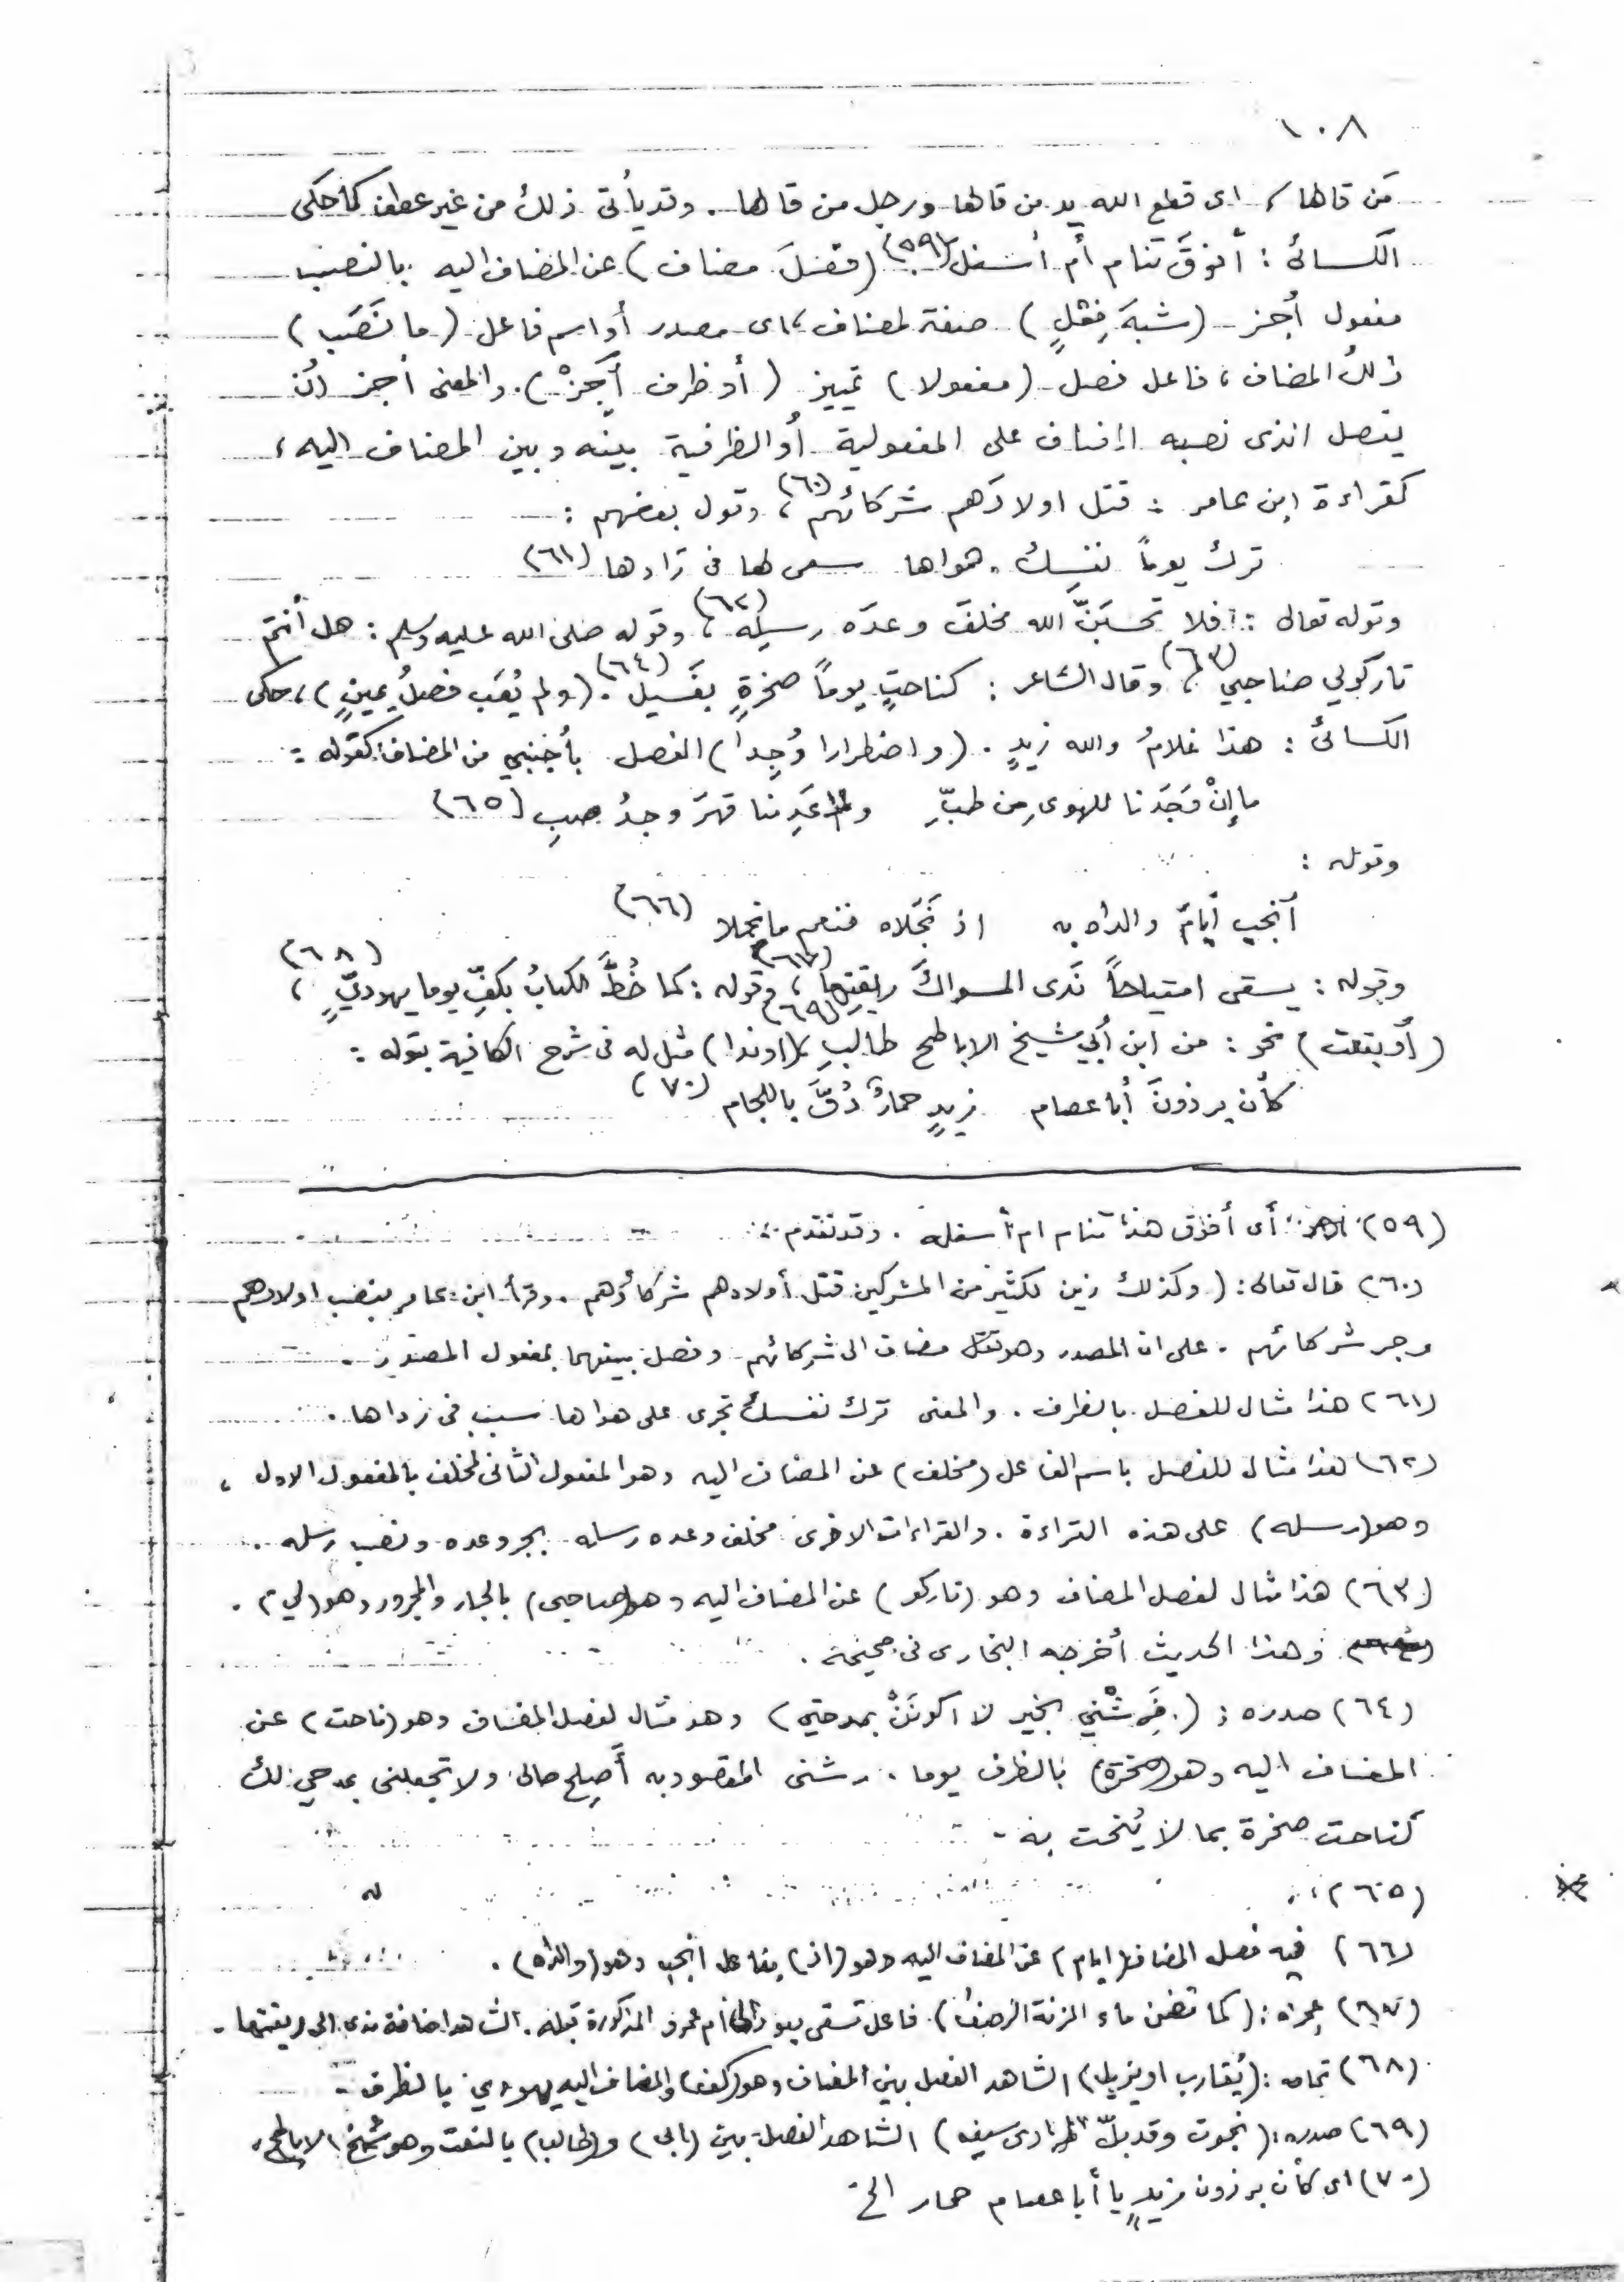 ١٠٨
مَن قالها، اى قطع الله يد من قالها ورجل من قالها. وقد يأتى ذلك من غير عطف كما حكى
الكسائى: أفوقَ تنام أم أسفل (٥٩) (فصلَ مضاف) عن المضاف اليه بالنصب
مفعول أجز (شبهَ فِعْلٍ) صفة لمضاف، اى مصدر أو اسم فاعل (ما نَصَب)
ذلك المضاف، فاعل فصل (مفعولا) تمييز (أو ظرف أَجِزْ). والمعنى أجز ان
يفصل الذى نصبه المضاف على المفعولية أو الظرفية بينه وبين المضاف اليه،
كقراءة ابن عامر: قتل اولادَهم شركائهم (٦٠)، وقول بعضهم:
ترك يوماً نفسِك وهواها سعى لها فى رَادها (٦١)
وقوله تعالى: فلا تحسَبَنَّ الله مخلفَ وعدَه رسلِه (٦٢)، وقوله صلى الله عليه وسلم: هل أنتم
تاركولي صاحبي (٦٣)، وقال الشاعر: كناحتِ يوماً صخرةٍ بعَسيل (٦٤). (ولم يُعَب فصلُ يمينٍ)، حكى
الكسائىُ: هذا غلامُ والله زيدٍ. (واضطرارا وُجِدا) الفصل بأجنبي من المضاف كقوله:
ما إنْ وَجَدنا للهوى مِن طبِّ ولا عَدِمنا قهرَ وجدُ صبِ (٦٥)
وقوله:
أنجب أيامَ والداه به اذ نَجَلاه فنعم ما نجلا (٦٦)
وقوله: يسقى امتياحاً نَدى المسواكَ ريقتِها (٦٧)، وقوله: كما خُطَّ الكتابُ بكفِّ يوما يهوديٍّ (٦٨)،
(أو بنعت) نحو: من ابن أبي شيخ الاباطح طالبِ (٦٩)، (اوندا) مثل له فى شرح الكافية بقوله:
كأن برذونَ أبا عصام زيدٍ حمارٌ دُقَّ باللجام (٧٠)
(٥٩) أى أفوق هذا تنام ام أسفله. وقد تقدم.
(٦٠) قال تعالى: (وكذلك زين لكثير من المشركين قتل أولادهم شركاؤهم. وقرأ ابن عامر بنصب اولادهم
وجر شركائهم. على ان المصدر وهو قتل مضاف الى شركائهم وفصل بينهما بمفعول المصدر.
(٦١) هذا مثال للفصل بالظرف. والمعنى ترك نفسك تجرى على هواها سبب فى رداها.
(٦٢) هذا مثال للفصل باسم الفاعل (مخلف) عن المضاف اليه وهو المفعول الثانى لمخلف بالمفعول الاول،
وهو (رسله) على هذه القراءة. والقراءات الاخرى مخلف وعده رسله بجر وعده ونصب رسله.
(٦٣) هذا مثال لفصل المضاف وهو (تاركو) عن المضاف اليه وهو (صاحبى) بالجار والمجرور وهو (لي).
وهذا الحديث أخرجه البخارى فى صحيحه.
(٦٤) صدره: (فَرِشْني بخير لا اكونَنْ بمدحتي) وهو مثال لفصل المضاف وهو (ناحت) عن
المضاف اليه وهو (صخرة) بالظرف يوما. رشنى المقصود به أَصلِح حالى ولا تجعلنى بمدحي لك
كناحت صخرة بما لا يُنحت به.
(٦٥)
(٦٦) فيه فصل المضاف (ايام) عن المضاف اليه وهو (اذ) بفاعل انجب وهو (والداه).
(٦٧) عجزه: (كما تضمن ماء المزنة الرصفُ). فاعل تسقى يعود الى أم عمرو المذكورة قبله. الشاهد اضافة ندى الى ريقتها.
(٦٨) تمامه: (يُقارب او يزيل) الشاهد الفصل بين المضاف وهو (كف) والمضاف اليه يهودي بالظرف.
(٦٩) صدره: (نجوت وقد بلّ المرادى سيفه) الشاهد الفصل بين (ابى) و(طالب) بالنعت وهو شيخ الاباطح.
(٧٠) اى كأن برذون زيدٍ يا أبا عصام حمار الخ